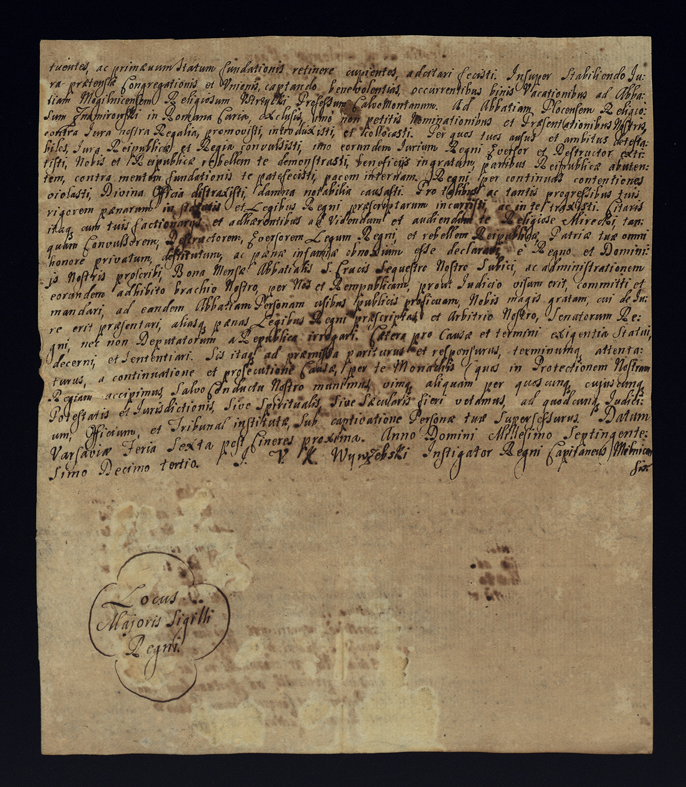 tuentes, ac primævum Statum fundationis retinere cupientes, adcitari fecisti. Insuper Stabiliendo Ju-
ra prætensæ Congregationis et Unionis, captando benevolentias, occurrentibus binis Vacationibus ad Abba-
tiam Mogilnicensem Religiosum Mirecki Professum CalvoMontanum. Ad Abbatiam Plocensem Religio-
sum in Romana Curia, exclusis, imo non petitis Nominationibus et Præsentationibus Nostris,
contra Jura nostra Regalia, promovisti, introduxisti, et collocasti. Per quos tuos ausus et ambitus detesta-
biles, Jura Reipublicæ et Regia convulsisti, imo eorundem Jurium Regni Eversor et Destructor exti-
tisti, Nobis et Reipublicæ rebellem te demonstrasti, beneficijs ingratum, panibus Reipublicæ abuten-
tem, contra mentem fundationis te patefecisti, pacem internam Regni per continuas contentiones
violasti, Divina Officia distraxisti, damna notabilia causasti. Pro talibus ac tantis progressibus tuis,
rigorem pænarum in et Legibus Regni præscriptarum incurristi, ac in te traxisti. Citaris
itaq, cum tuis Factionarijs et adhærentibus ad Videndum et audiendum te Religiose Mirecki, tan-
quam Convulsorem, Destructorem, Eversorem Legum Regni, et rebellem Reipublicæ, Patriæ tuæ omni
honore privatum, destitutum, ac pænæ infamiæ obnoxium esse declarari, è Regno et Domini-
js Nostris proscribi, Bona Mensæ Abbatialis S. Crucis Sequestro Nostro Subijci, ac administrationem
eorundem adhibito brachio Nostro, per Nos et Rempublicam, prout Judicio visum erit, committi et
mandari, ad eandem Abbatiam Personam usibus publicis proficuam, Nobis magis gratam, cui de Ju-
re erit præsentari, aliasq, pænas Legibus Regni præscriptas, et Arbitrio Nostro, Senatorum Re-
gni, nec non Deputatorum à Republica irrogari. Cætera pro Causæ et termini exigentia Statui,
decerni, et Sententiari. Sis itaq, ad præmissa pariturus et responsurus, terminumq, attenta-
turus, a continuatione et prosecutione Causæ, per te Monachis (quos in Protectionem Nostram
Regiam accipimus, Salvo Conductu Nostro munimus, vimq, aliquam per quoscunq, cujuscunq,
Potestatis et Jurisdictionis, Sive Spiritualis Sive Sæcularis fieri vetamus, ad quodcunq, Judici-
um, Officium, et Tribunal institutæ, Sub captivatione Personæ tuæ Supersessurus. Datum
Varsaviæ Feria Sexta post Cineres proxima. Anno Domini Millesimo Septingente-
Simo Decimo tertio. J. V. K. Instigator Regni Capitaneus
Locus
Majoris Sigilli
Regni